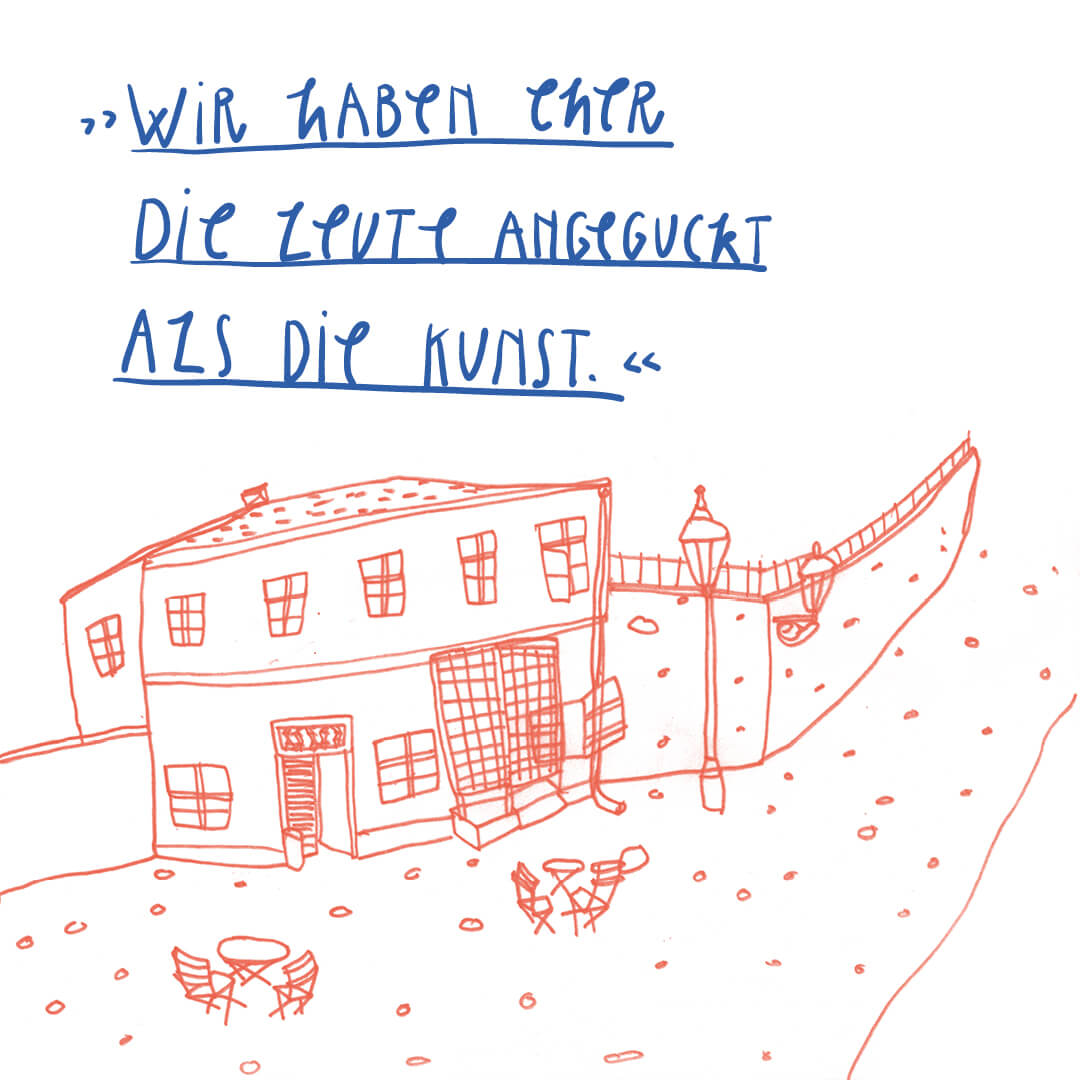 »Wir haben eher
die Leute angeguckt
als die Kunst.«